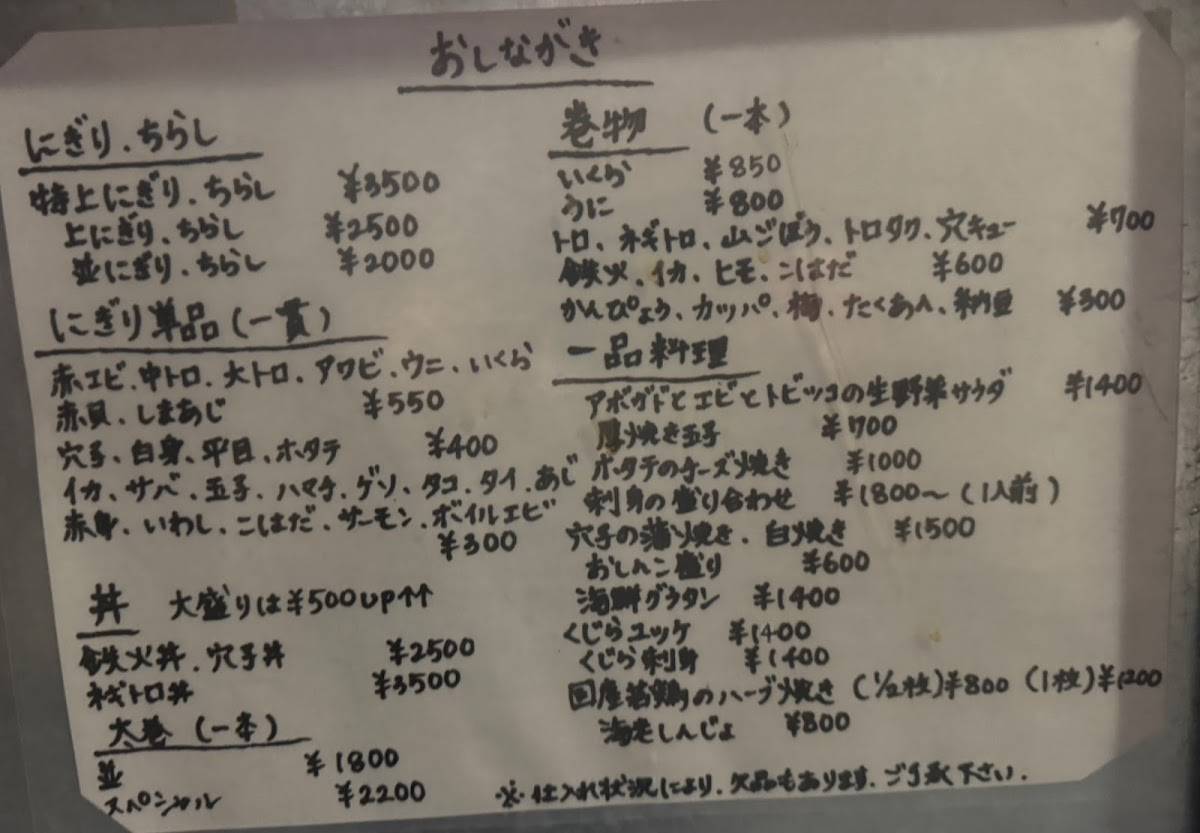 おしながき
にぎり、ちらし
特上にぎり、ちらし ¥3500
上にぎり、ちらし ¥2500
並にぎり、ちらし ¥2000
にぎり単品(一貫)
赤エビ、中トロ、大トロ、アワビ、ウニ、いくら
赤貝、しまあじ ¥550
穴子、白身、平目、ホタテ ¥400
イカ、サバ、玉子、ハマチ、ゲソ、タコ、タイ、あじ
赤身、いわし、こはだ、サーモン、ボイルエビ
¥300
丼 大盛りは¥500up↑↑
鉄火丼、穴子丼 ¥2500
ネギトロ丼 ¥3500
太巻(一本)
並 ¥1800
スペシャル ¥2200
巻物 (一本)
いくら ¥850
うに ¥800
トロ、ネギトロ、山ごぼう、トロタク、穴キュー ¥700
鉄火、イカ、ヒモ、こはだ ¥600
かんぴょう、カッパ、梅、たくあん、納豆 ¥300
一品料理
アボガドとエビとトビッコの生野菜サラダ ¥1400
厚焼き玉子 ¥700
ホタテのチーズ焼き ¥1000
刺身の盛り合わせ ¥1800〜(1人前)
穴子の蒲焼き、白焼き ¥1500
おしんこ盛り ¥600
海鮮グラタン ¥1400
くじらユッケ ¥1400
くじら刺身 ¥1400
国産若鶏のハーブ焼き (1/2枚)¥800 (1枚)¥1200
海老しんじょ ¥800
※仕入れ状況により、欠品もあります。ご了承下さい.